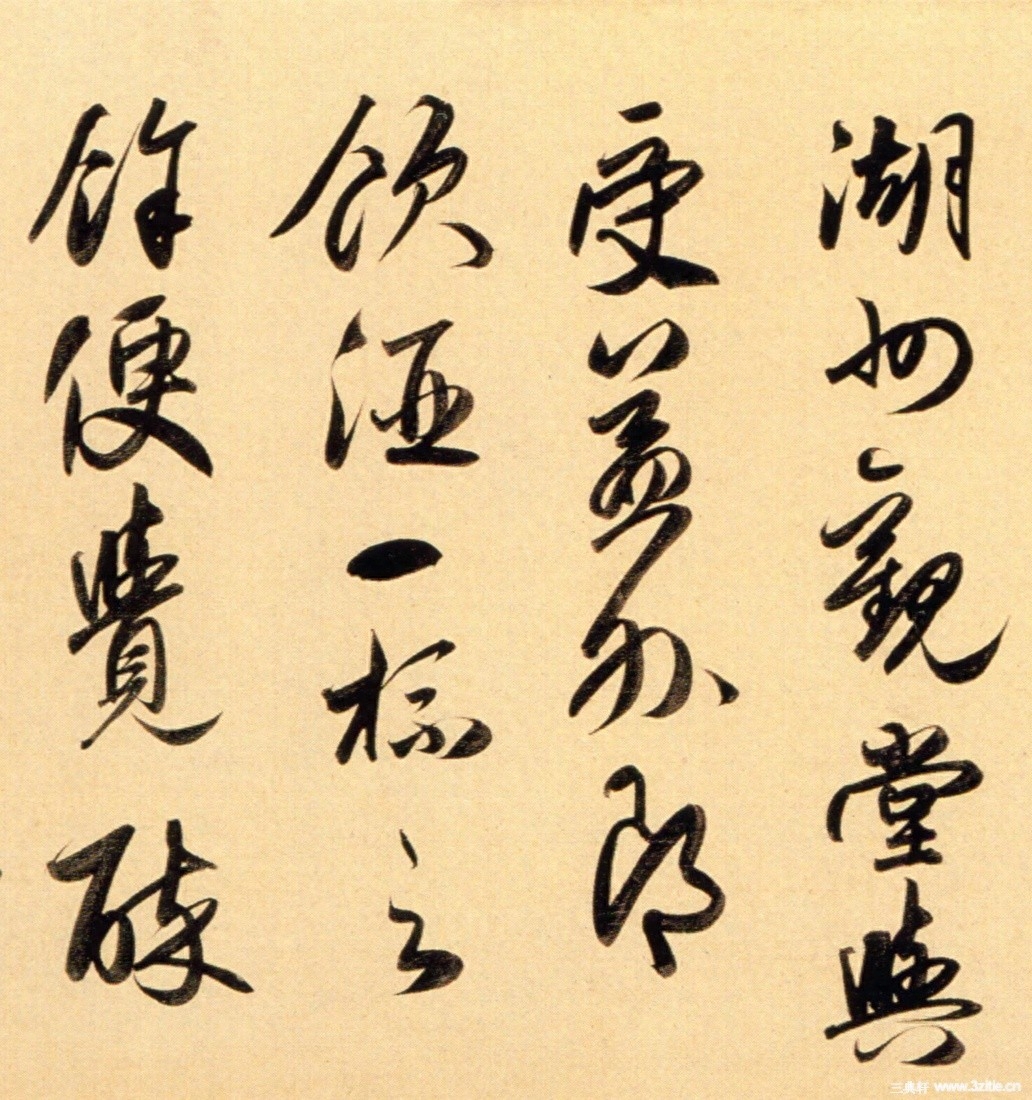 湖州觀堂與
受益外郎
飲酒一杯之
餘便覺醉
三典轩 www.3zitie.cn